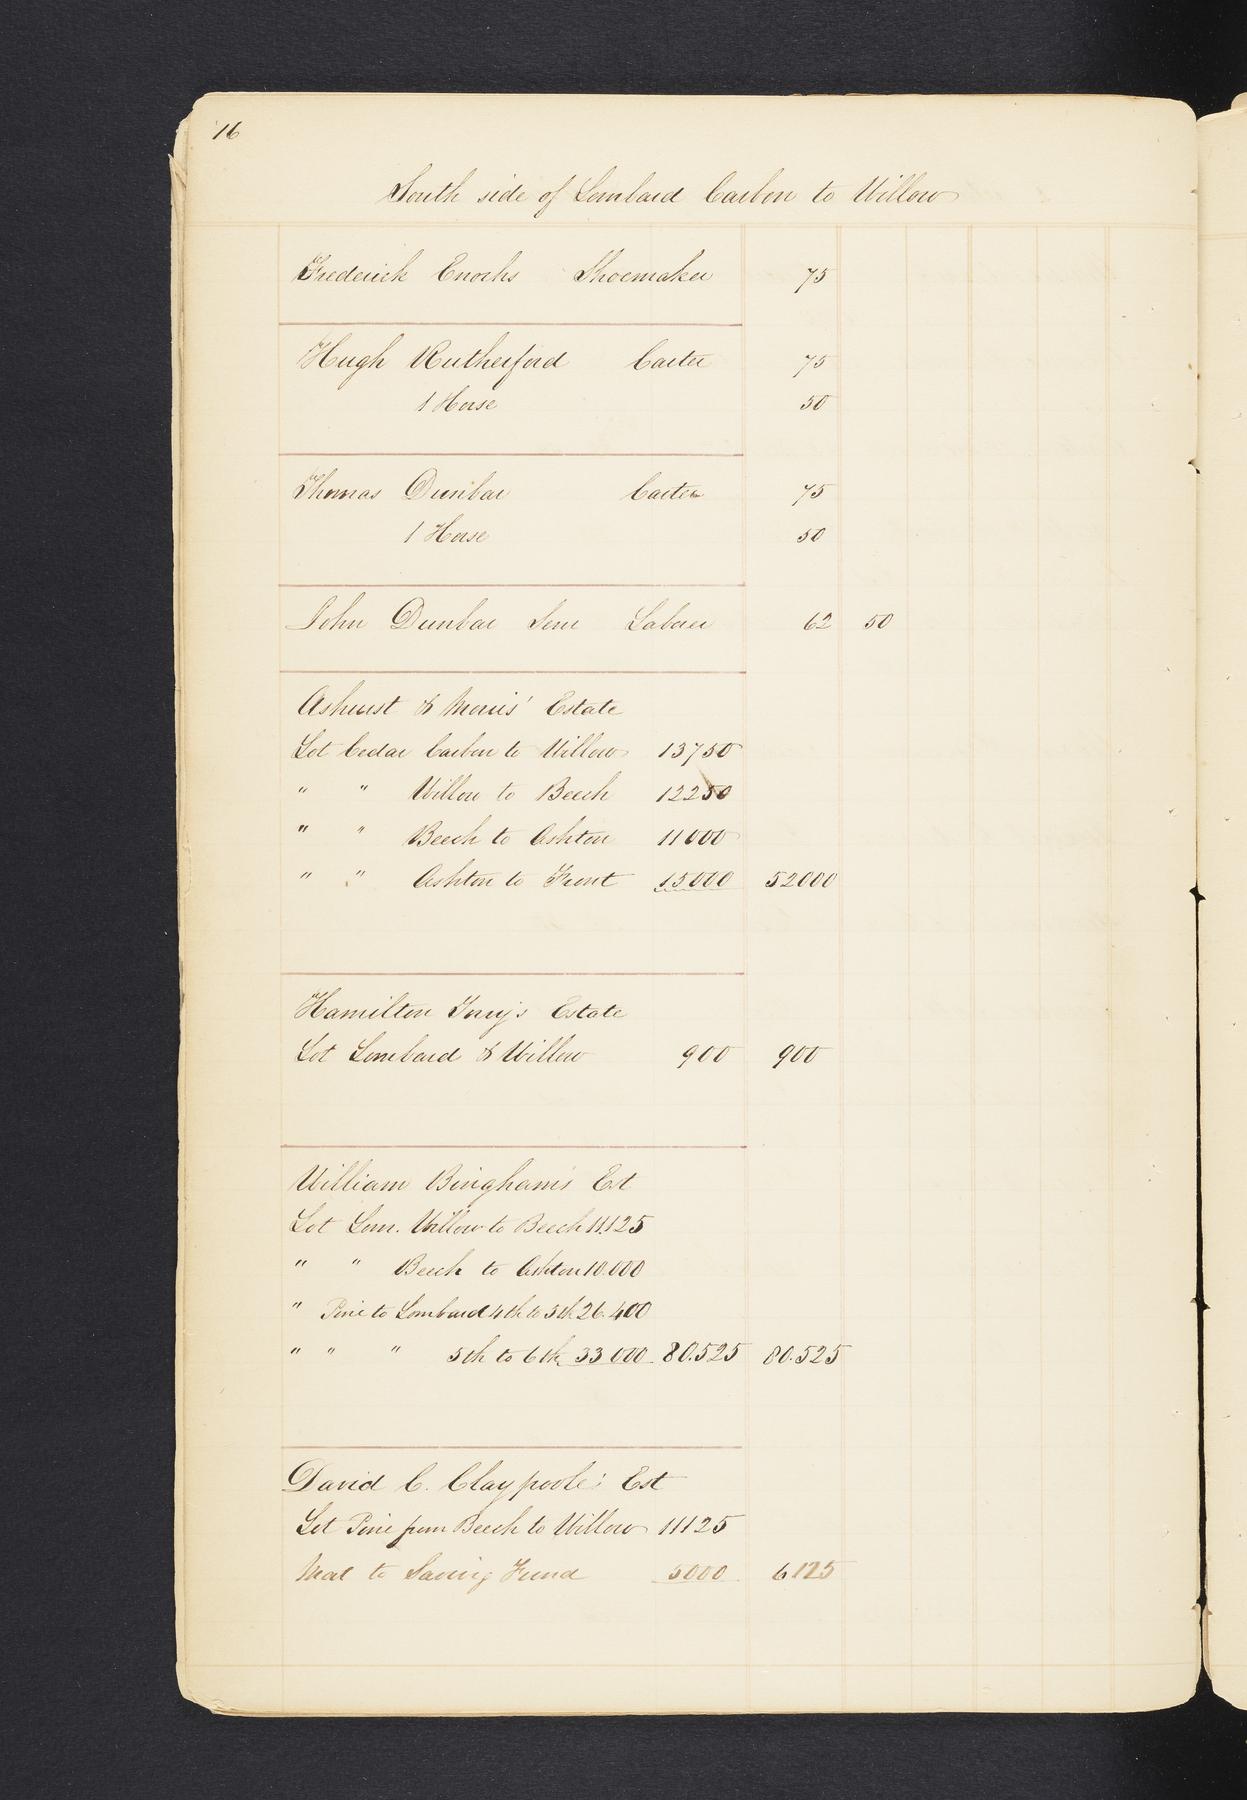 16
South side of Lombard Carbon to Willow
Frederick Enochs Shoemaker 75
Hugh Rutherford Carter 75
1 Horse 50
Thomas Dunbar Carter 75
1 Horse 50
John Dunbar Senr Laborer 62 50
Ashurst & Morris' Estate
Lot Cedar Carbon to Willow 13750
" " Willow to Beech 12250
" " Beech to Ashton 11000
" " Ashton to Front 15000 52000
Hamilton Estate
Lot Lombard & Willow 900 900
William Bingham's Est
Lot Lom. Willow to Beech 11.125
" " Beech to Ashton 10.000
" Pine to Lombard 4th to 5th 26.400
" " " 5th to 6th 33 000 80.525 80.525
David C. Claypoole's Est
Lot Pine from Beech to Willow 11125
to Saving Fund 5000 6125